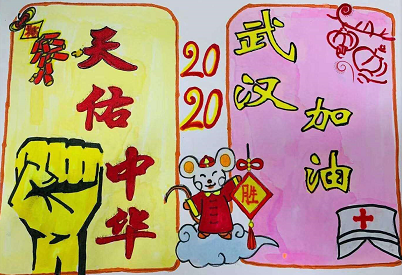 天佑中华
20
20
武汉
加油
胜